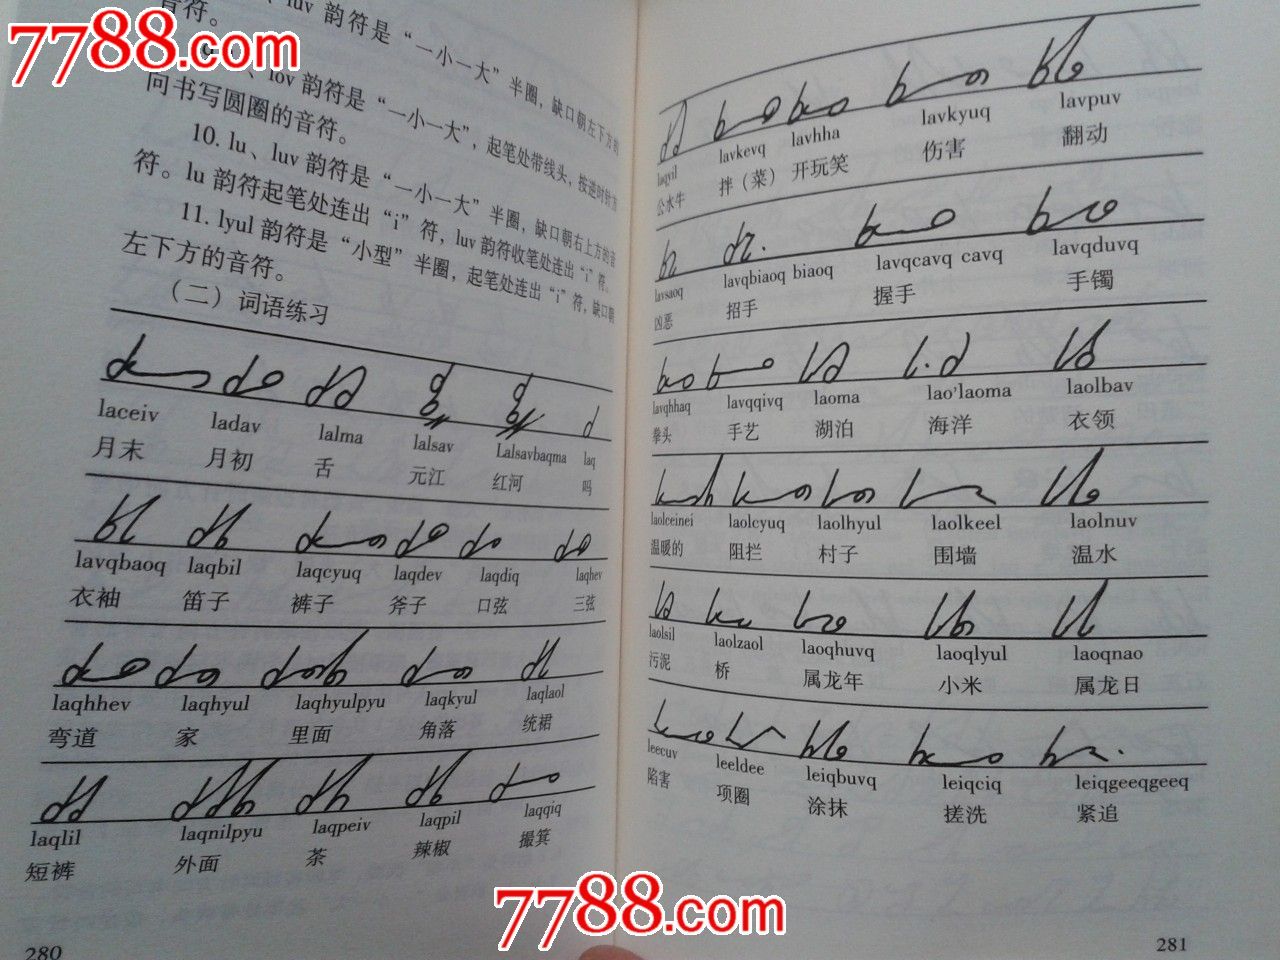 音符。
luv 韵符是“一小一大”半圈，缺口朝左下方的
、lov 韵符是“一小一大”，起笔处带线头，按逆时针方
向书写圆圈的音符。
10. lu、luv 韵符是“一小一大”半圈，缺口朝右上方的音
符。lu 韵符起笔处连出“i”符，luv 韵符收笔处连出“i”符。
11. lyul 韵符是“小型”半圈，起笔处连出“i”符，缺口朝
左下方的音符。
（二）词语练习
laceiv ladav lalma lalsav Lalsavbaqma laq
月末 月初 舌 元江 红河 吗
lavqbaoq laqbil laqcyuq laqdev laqdiq laqhev
衣袖 笛子 裤子 斧子 口弦 三弦
laqhhev laqhyul laqhyulpyu laqkyul laqlaol
弯道 家 里面 角落 统裙
laqlil laqnilpyu laqpeiv laqpil laqqiq
短裤 外面 茶 辣椒 撮箕
280
laqyil lavkevq lavhha lavkyuq lavpuv
公水牛 拌（菜） 开玩笑 伤害 翻动
lavsaoq lavqbiaoq biaoq lavqcavq cavq lavqduvq
凶恶 招手 握手 手镯
lavqhhaq lavqqivq laoma lao'laoma laolbav
拳头 手艺 湖泊 海洋 衣领
laolceinei laolcyuq laolhyul laolkeel laolnuv
温暖的 阻拦 村子 围墙 温水
laolsil laolzaol laoqhuvq laoqlyul laoqnao
污泥 桥 属龙年 小米 属龙日
leecuv leeldee leiqbuvq leiqciq leiqgeeqgeeq
陷害 项圈 涂抹 搓洗 紧追
281
7788.com
7788.com
7788.com